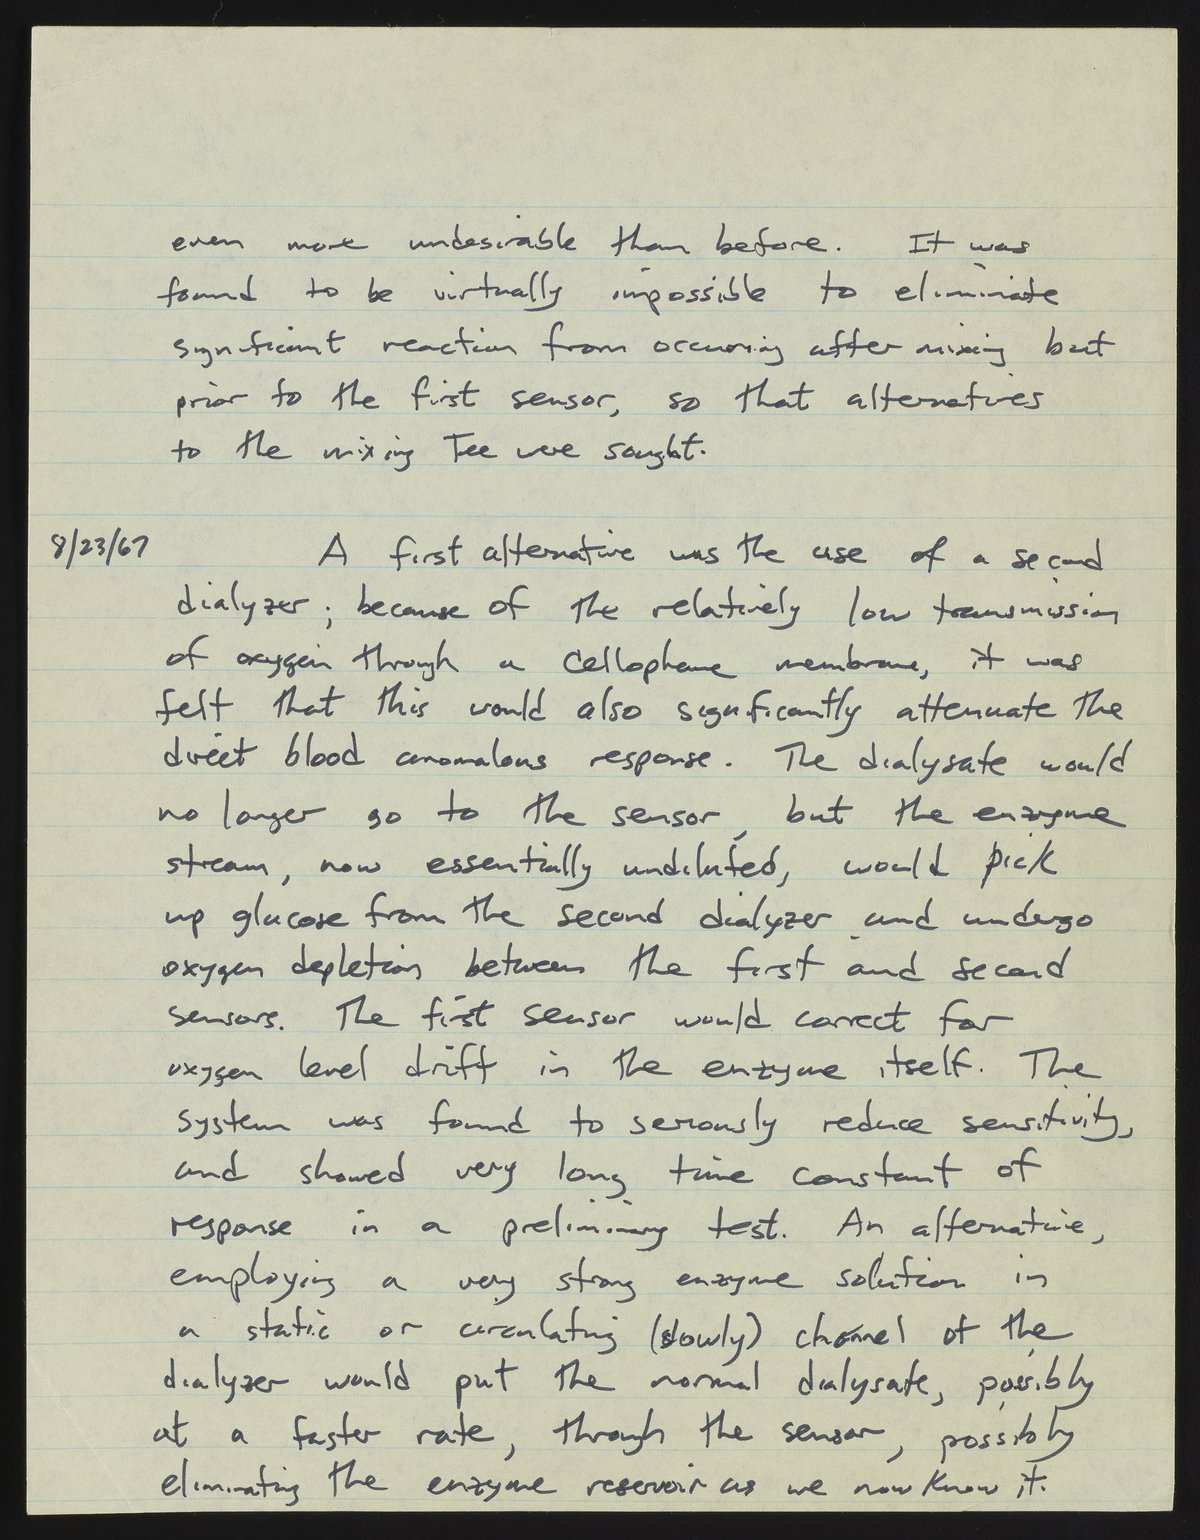 even more undesirable than before. It was
found to be virtually impossible to eliminate
significant reaction from occurring after mixing but
prior to the first sensor, so that alternatives
to the mixing Tee were sought.
8/23/67 A first alternative was the use of a second
dialyzer; because of the relatively low transmission
of oxygen through a cellophane membrane, it was
felt that this would also significantly attenuate the
direct blood anomalous response. The dialysate would
no longer go to the sensor, but the enzyme
stream, now essentially undiluted, would pick
up glucose from the second dialyzer and undergo
oxygen depletion between the first and second
sensors. The first sensor would correct for
oxygen level drift in the enzyme itself. The
system was found to seriously reduce sensitivity,
and showed very long time constant of
response in a preliminary test. An alternative,
employing a very strong enzyme solution in
a static or circulating (slowly) channel of the
dialyzer would put the normal dialysate, possibly
at a faster rate, through the sensor, possibly
eliminating the enzyme reservoir as we now know it.